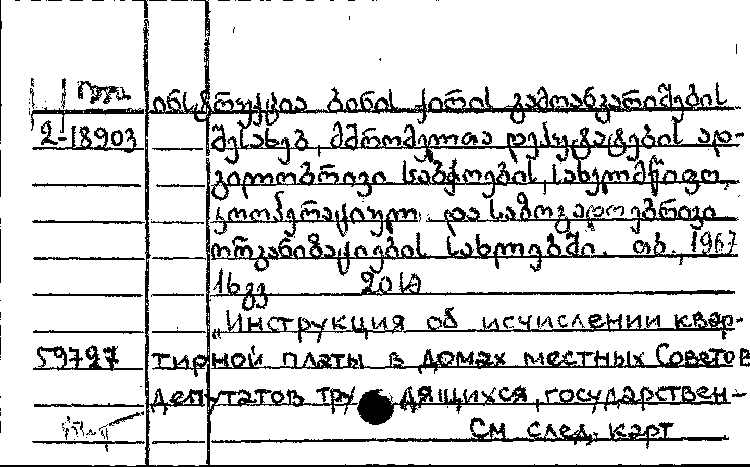 ინსტრუქცია ბინის ქირის გამოანგარიშების
2-18903 შესახებ, მშრომელთა დეპუტატების ად-
გილობრივი საბჭოების, სახელმწიფო,
კოოპერაციულ და საზოგადოებრივი
ორგანიზაციების სახლებში. თბ., 1967
16 გვ 20 სმ
„Инструкция об исчислении квар-
59727 тирной платы в домах местных Советов
депутатов трудящихся, государствен-
См след. карт